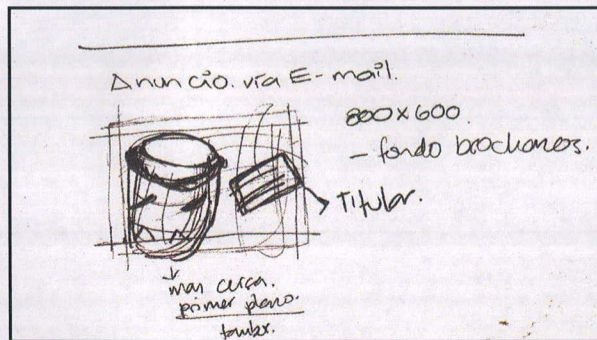 Anuncio. vía E-mail.
800x600
— fondo brochaneos.
Titular.
mas cerca.
primer plano
tambor.